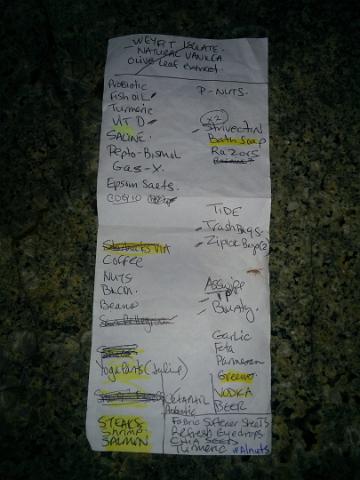 WEYFIT ISOLATE.
NATURAL VANILLA
Olive Leaf extract
Probiotic
Fish Oil
Turmeric
VIT D
SALINE
Pepto-Bismol
Gas-X
Epsom Salts.
COQ10
P-NUTS.
x2
Strivectin
Bath Soap
Razors
Starbucks VIA
Coffee
Nuts
Bacon
Beans
San Pellegrino
Yoga Pants (Julie)
TIDE
Trash Bags
Ziploc Bags (2)
Bounty
Garlic
Feta
Parmesan
Greens
VODKA
BEER
STEAKS
Shrimp
SALMON
Fabric Softener Sheets
Refresh Eyedrops
CHIA SEEDS
Turmeric #Alnuts